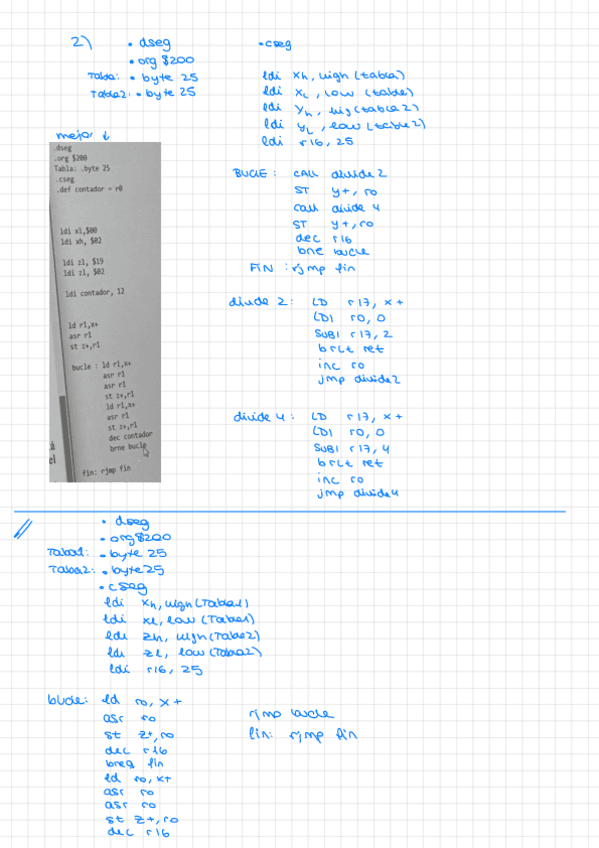 2)
. dseg
. org $200
Tabla: . byte 25
Tabla2: . byte 25
mejor ↓
.dseg
.org $200
Tabla: .byte 25
.cseg
.def contador = r0
ldi xl,$00
ldi xh, $02
ldi zl, $19
ldi zl, $02
ldi contador, 12
ld r1,x+
asr r1
st z+,r1
bucle : ld r1,x+
asr r1
asr r1
st z+,r1
ld r1,x+
asr r1
st z+,r1
dec contador
brne bucle
fin: rjmp fin
.cseg
ldi xh, high (tabla)
ldi xL, low (tabla)
ldi yh, hig(tabla2)
ldi yL, low (tabla2)
ldi r16, 25
BUCLE: CALL divide2
ST y+, r0
call divide 4
ST y+, r0
dec r16
bne bucle
FIN : rjmp fin
divide 2: LD r17, x+
LDI r0, 0
SUBI r17, 2
brlt ret
inc r0
jmp divide2
divide 4: LD r17, x+
LDI r0, 0
SUBI r17, 4
brlt ret
inc r0
jmp divide4
. dseg
. org $200
Tabla1: . byte 25
Tabla2: . byte 25
. cseg
ldi xh, high(Tabla1)
ldi xl, low(Tabla1)
ldi zh, high(Tabla2)
ldi zl, low(Tabla2)
ldi r16, 25
bucle: ld r0, x+
asr r0
st z+, r0
dec r16
breq fin
ld r0, x+
asr r0
asr r0
st z+, r0
dec r16
rjmp bucle
fin: rjmp fin